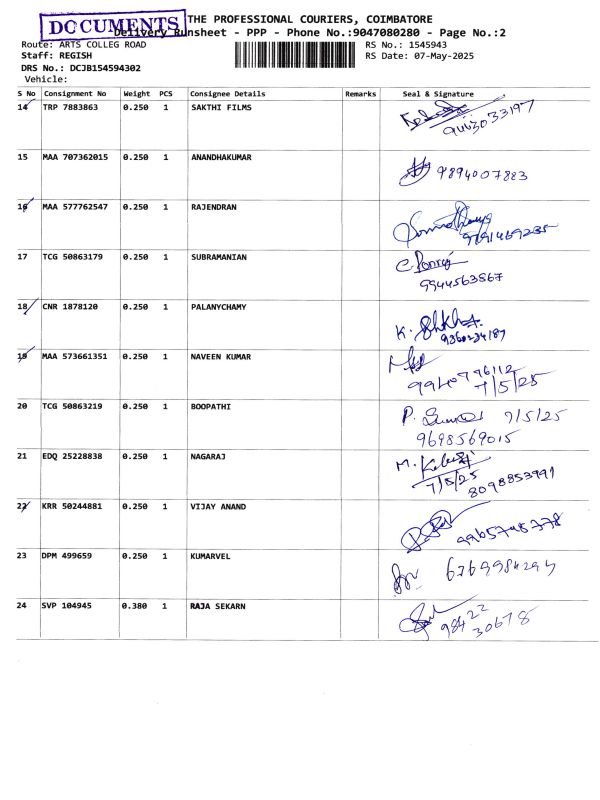 DOCUMENTS
THE PROFESSIONAL COURIERS, COIMBATORE
Delivery Runsheet - PPP - Phone No.:9047080280 - Page No.:2
Route: ARTS COLLEG ROAD
RS No.: 1545943
Staff: REGISH
RS Date: 07-May-2025
DRS No.: DCJB154594302
Vehicle:
S No Consignment No Weight PCS Consignee Details Remarks Seal & Signature
14 TRP 7883863 0.250 1 SAKTHI FILMS
9463033197
15 MAA 707362015 0.250 1 ANANDHAKUMAR
9894007883
16 MAA 577762547 0.250 1 RAJENDRAN
9791469235
17 TCG 50863179 0.250 1 SUBRAMANIAN
9944563567
18 CNR 1878120 0.250 1 PALANYCHAMY
9360234187
19 MAA 573661351 0.250 1 NAVEEN KUMAR
9940796112
7/5/25
20 TCG 50863219 0.250 1 BOOPATHI
P. 7/5/25
9698569015
21 EDQ 25228838 0.250 1 NAGARAJ
M.
7/5/25
8098853991
22 KRR 50244881 0.250 1 VIJAY ANAND
9965745778
23 DPM 499659 0.250 1 KUMARVEL
24 SVP 104945 0.380 1 RAJA SEKARN
98422
30678